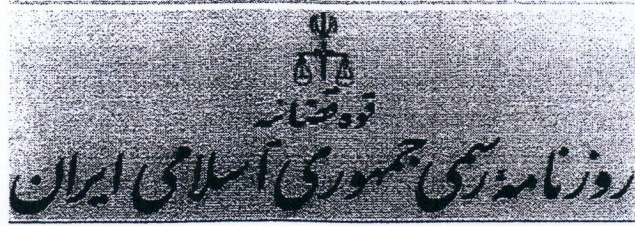 قوه قضائیه
روزنامه رسمی جمهوری اسلامی ایران